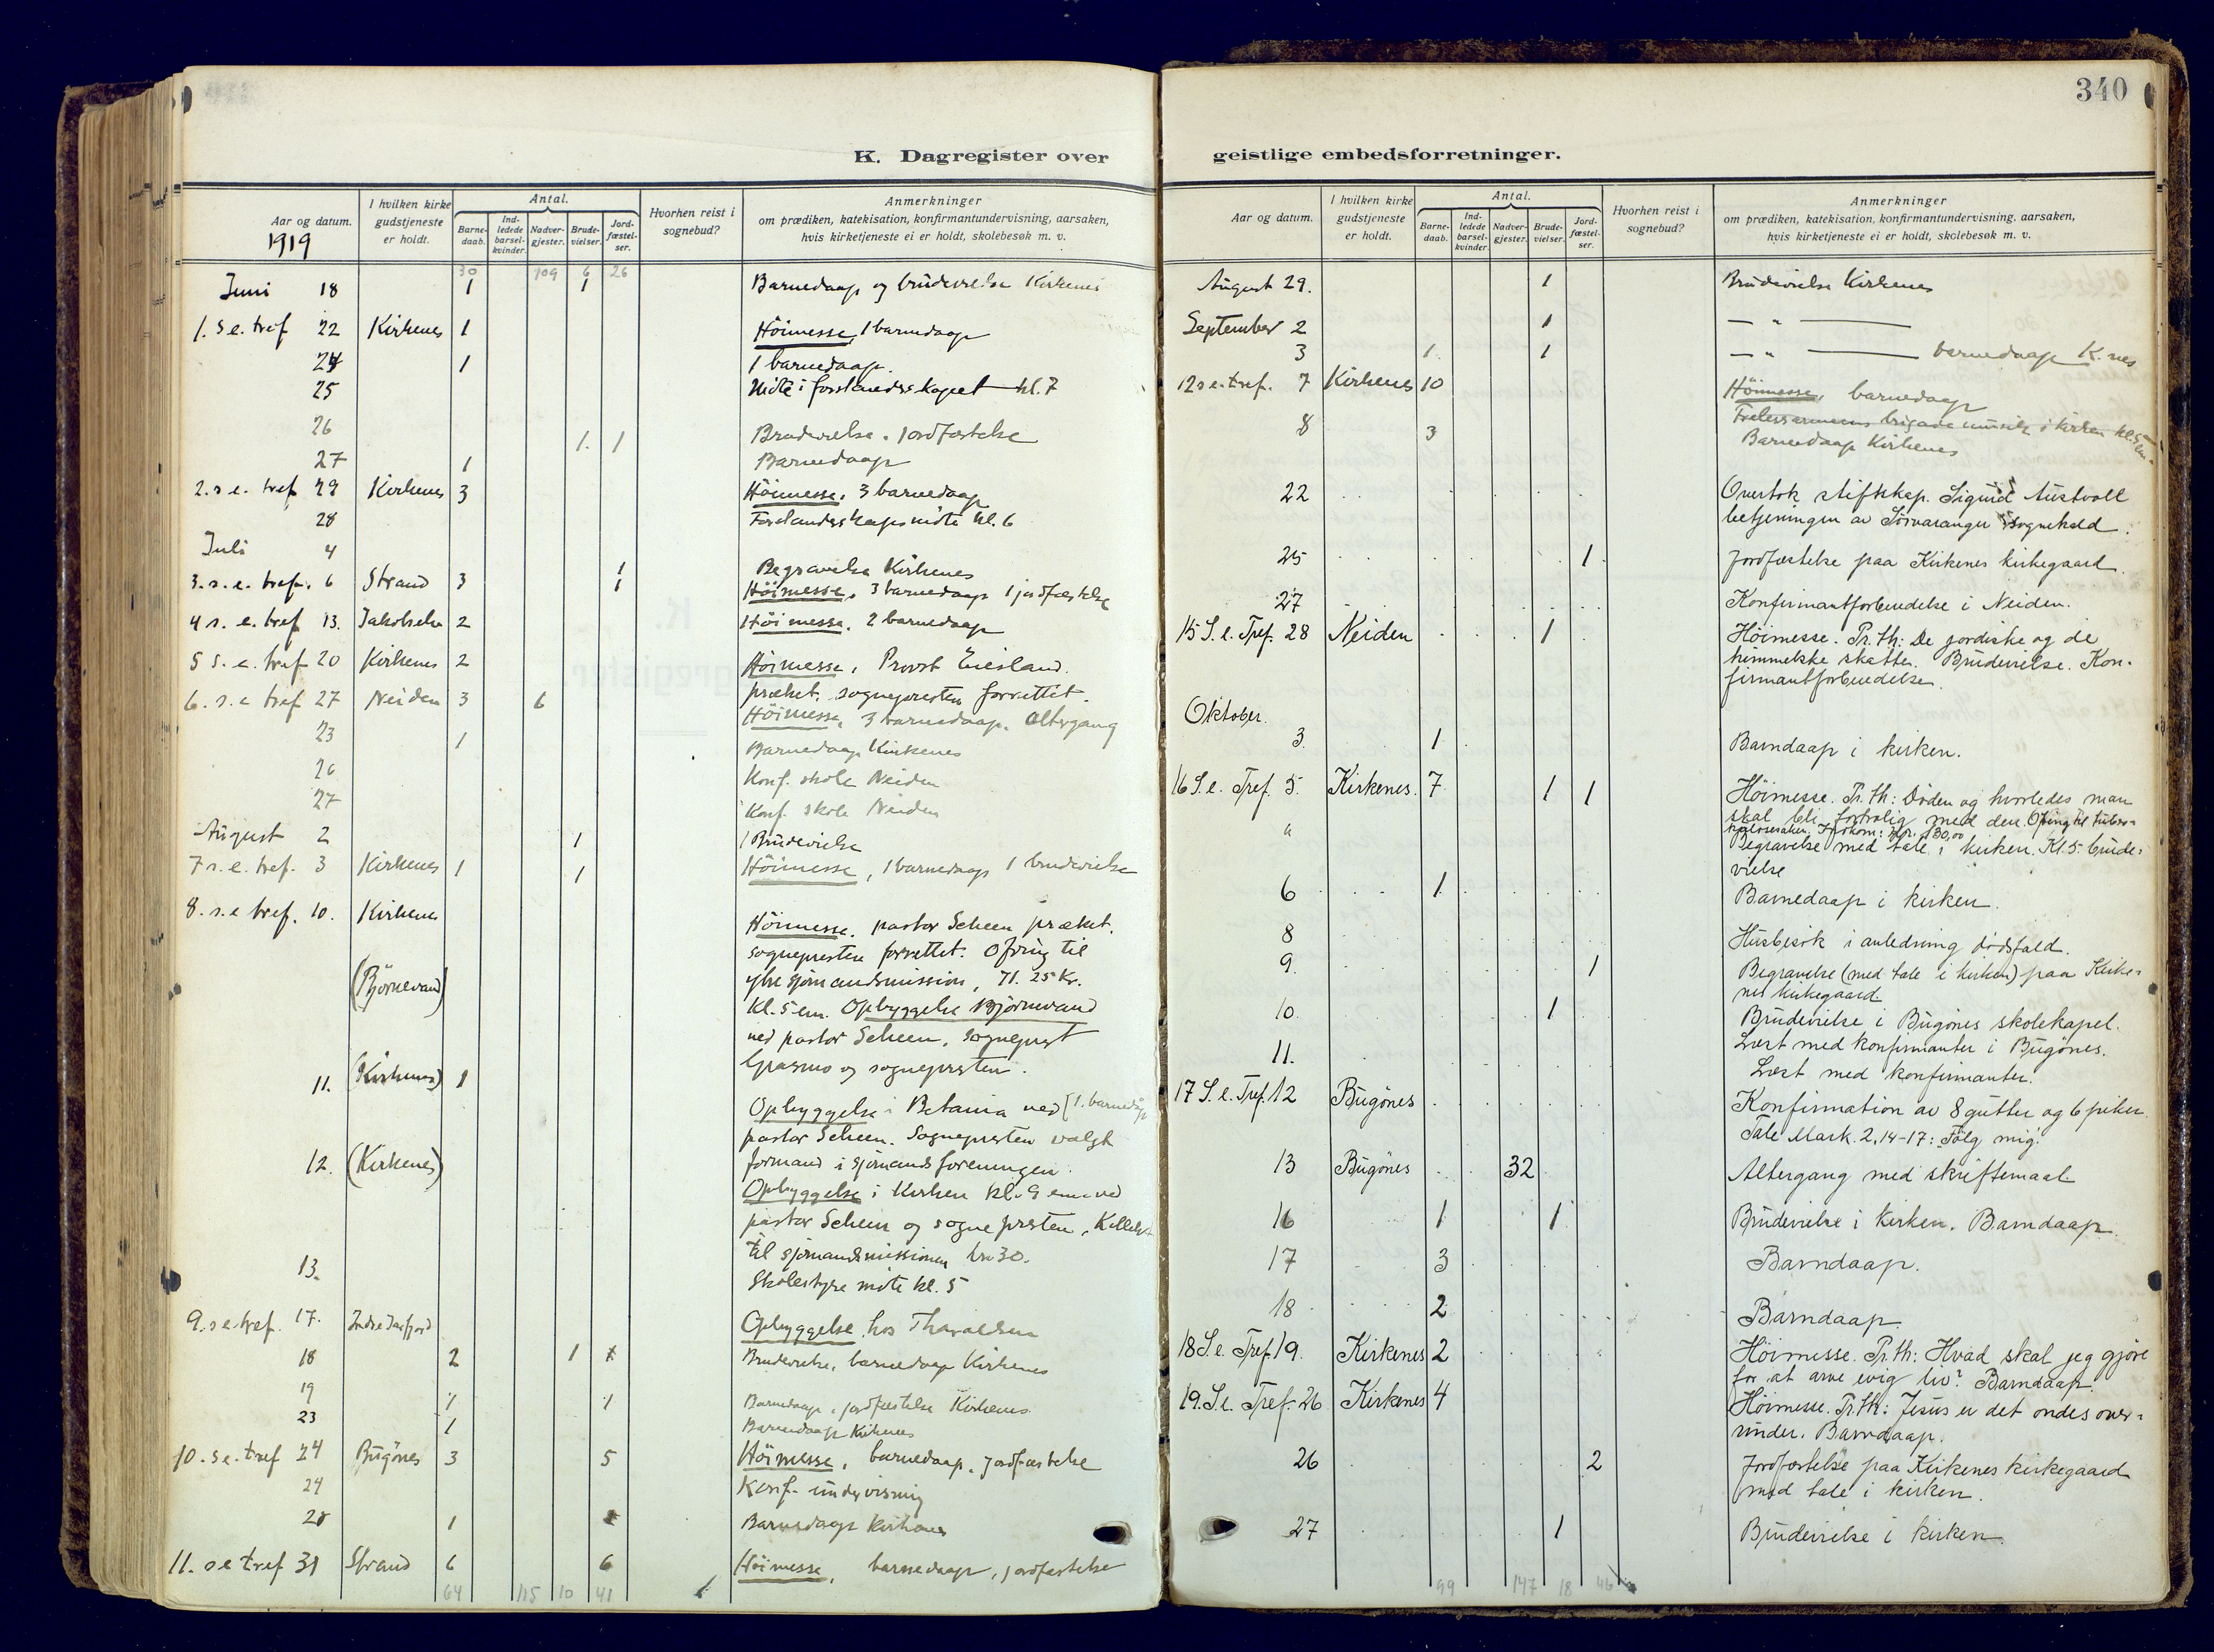 340
K. Dagregister over
geistlige embedsforretninger.
Aar og datum.
1919
I hvilken kirke gudstjeneste er holdt.
Antal.
Barne-daab.
Ind-ledede barsel-kvinder.
Nadver-gjester.
Brude-vielser.
Jord-fæstel-ser.
Hvorhen reist i sognebud?
Anmerkninger
om prædiken, katekisation, konfirmantundervisning, aarsaken,
hvis kirketjeneste ei er holdt, skolebesøk m. v.
30 109 6 26
Juni 18 1 1 Barnedaap og brudevielse Kirkenes
1. s e. tref 22 Kirkenes 1 Höimesse, 1 barnedaap
24 1 1 barnedaap.
25 Möte i forstanderskapet kl. 7
26 1. 1 Brudevielse. jordfæstelse
27 1 Barnedaap
2. s. e. tref 29 Kirkenes 3 Höimesse. 3 barnedaap
28 Forstanderskapsmöte kl. 6
Juli 4 1 Begravelse Kirkenes
3. s. e. tref. 6 Strand 3 1 Höimesse, 3 barnedaap 1 jordfæstelse
4 s. e. tref 13. Jakobselv 2 Höimesse. 2 barnedaap
5 s. e. tref 20 Kirkenes 2 Höimesse, Provst
præket, sognepresten forrettet.
6. s. e tref 27 Neiden 3 6 Höimesse, 3 barnedaap. Altergang
23 1 Barnedaap Kirkenes
26 Konf. skole Neiden
27 Konf. skole Neiden
August 2 1 1 Brudevielse
7 s. e. tref. 3 Kirkenes 1 1 Höimesse, 1 barnedaap 1 brudevielse
8. s. e tref. 10. Kirkenes Höimesse. pastor Scheen præket.
sognepresten forrettet. Ofring til
ytre sjömandsmission, 71.25 Kr.
(Björnevand) Kl. 5 em. Opbyggelse Björnevand
ved pastor Scheen, sogneprest
og sognepresten.
11. (Kirkenes) 1 Opbyggelse i Betania ved [1. barnedaap
pastor Scheen. Sognepresten valgt
formand i sjömandsforeningen.
12. (Kirkenes) Opbyggelse i Kirken kl. 9 em ved
pastor Scheen og sognepresten, Kollekt
til sjömandsmissionen kr 30.
13. Skolestyre möte kl. 5
9. s e tref. 17. Indre Jarfjord Opbyggelse hos Thoraldsen
18 2 1 1 Brudevielse, barnedaap Kirkenes
19 1 1 Barnedaap, jordfæstelse Kirkenes
23 1 Barnedaap Kirkenes
10. s e. tref 24 Bugönes 3 5 Höimesse, barnedaap, jordfæstelse
24 Konf. undervisning
28 1 Barnedaap Kirkenes
11. s e tref 31 Strand 6 6 Höimesse, barnedaap, jordfæstelse
64 115 10 41
Aar og datum.
I hvilken kirke gudstjeneste er holdt.
Antal.
Barne-daab.
Ind-ledede barsel-kvinder.
Nadver-gjester.
Brude-vielser.
Jord-fæstel-ser.
Hvorhen reist i sognebud?
Anmerkninger
om prædiken, katekisation, konfirmantundervisning, aarsaken,
hvis kirketjeneste ei er holdt, skolebesøk m. v.
August 29. 1 Brudevielse Kirkenes
September 2 1 — " —
3 1. 1 — " — barnedaap K.nes
12 s e tref. 7 Kirkenes 10 Höimesse, barnedaap
Frelsesarmeens brigade musik i kirken kl. 5 em.
8 3 Barnedaap Kirkenes
22 Overtok stiftskap. Sigurd Austvoll
betjeningen av Sörvaranger sognekald.
25 1 Jordfæstelse paa Kirkenes kirkegaard.
27 Konfirmantforberedelse i Neiden.
15 S. e. Tref. 28 Neiden 1 Höimesse. Pr. th: De jordiske og de
himmelske skatter. Brudevielse. Kon-
firmantforberedelse.
Oktober.
3. 1 Barndaap i kirken.
16 S. e. Tref. 5. Kirkenes. 7 1 1 Höimesse. Pr. th: Döden og hvorledes man
skal bli fortrolig med den. Ofring til tuber-
kulosesaken. Indkom: kr. 130,00
" Begravelse med tale i kirken. Kl. 5. brude-
vielse
6 1 Barnedaap i kirken.
8 Husbesök i anledning dödsfald.
9. 1 Begravelse (med tale i kirken) paa Kirke-
nes kirkegaard.
10. 1 Brudevielse i Bugönes skolekapel.
Læst med konfirmanter i Bugönes.
11. Læst med konfirmanter.
17 S. e. Tref. 12 Bugönes Konfirmation av 8 gutter og 6 piker.
Tale Mark. 2, 14-17: Fölg mig!
13 Bugönes 32 Altergang med skriftemaal.
16 1 1 Brudevielse i kirken. Barndaap.
17 3 Barndaap.
18 2 Barndaap.
18 S. e. Tref. 19. Kirkenes 2 Höimesse. Pr. th: Hvad skal jeg gjöre
for at arve evig liv? Barndaap.
19. S. e. Tref. 26 Kirkenes 4 Höimesse. Pr. th: Jesus er det ondes over-
vinder. Barndaap.
26 2 Jordfæstelse paa Kirkenes kirkegaard
med tale i kirken.
27 1 Brudevielse i kirken.
99 147 18 46